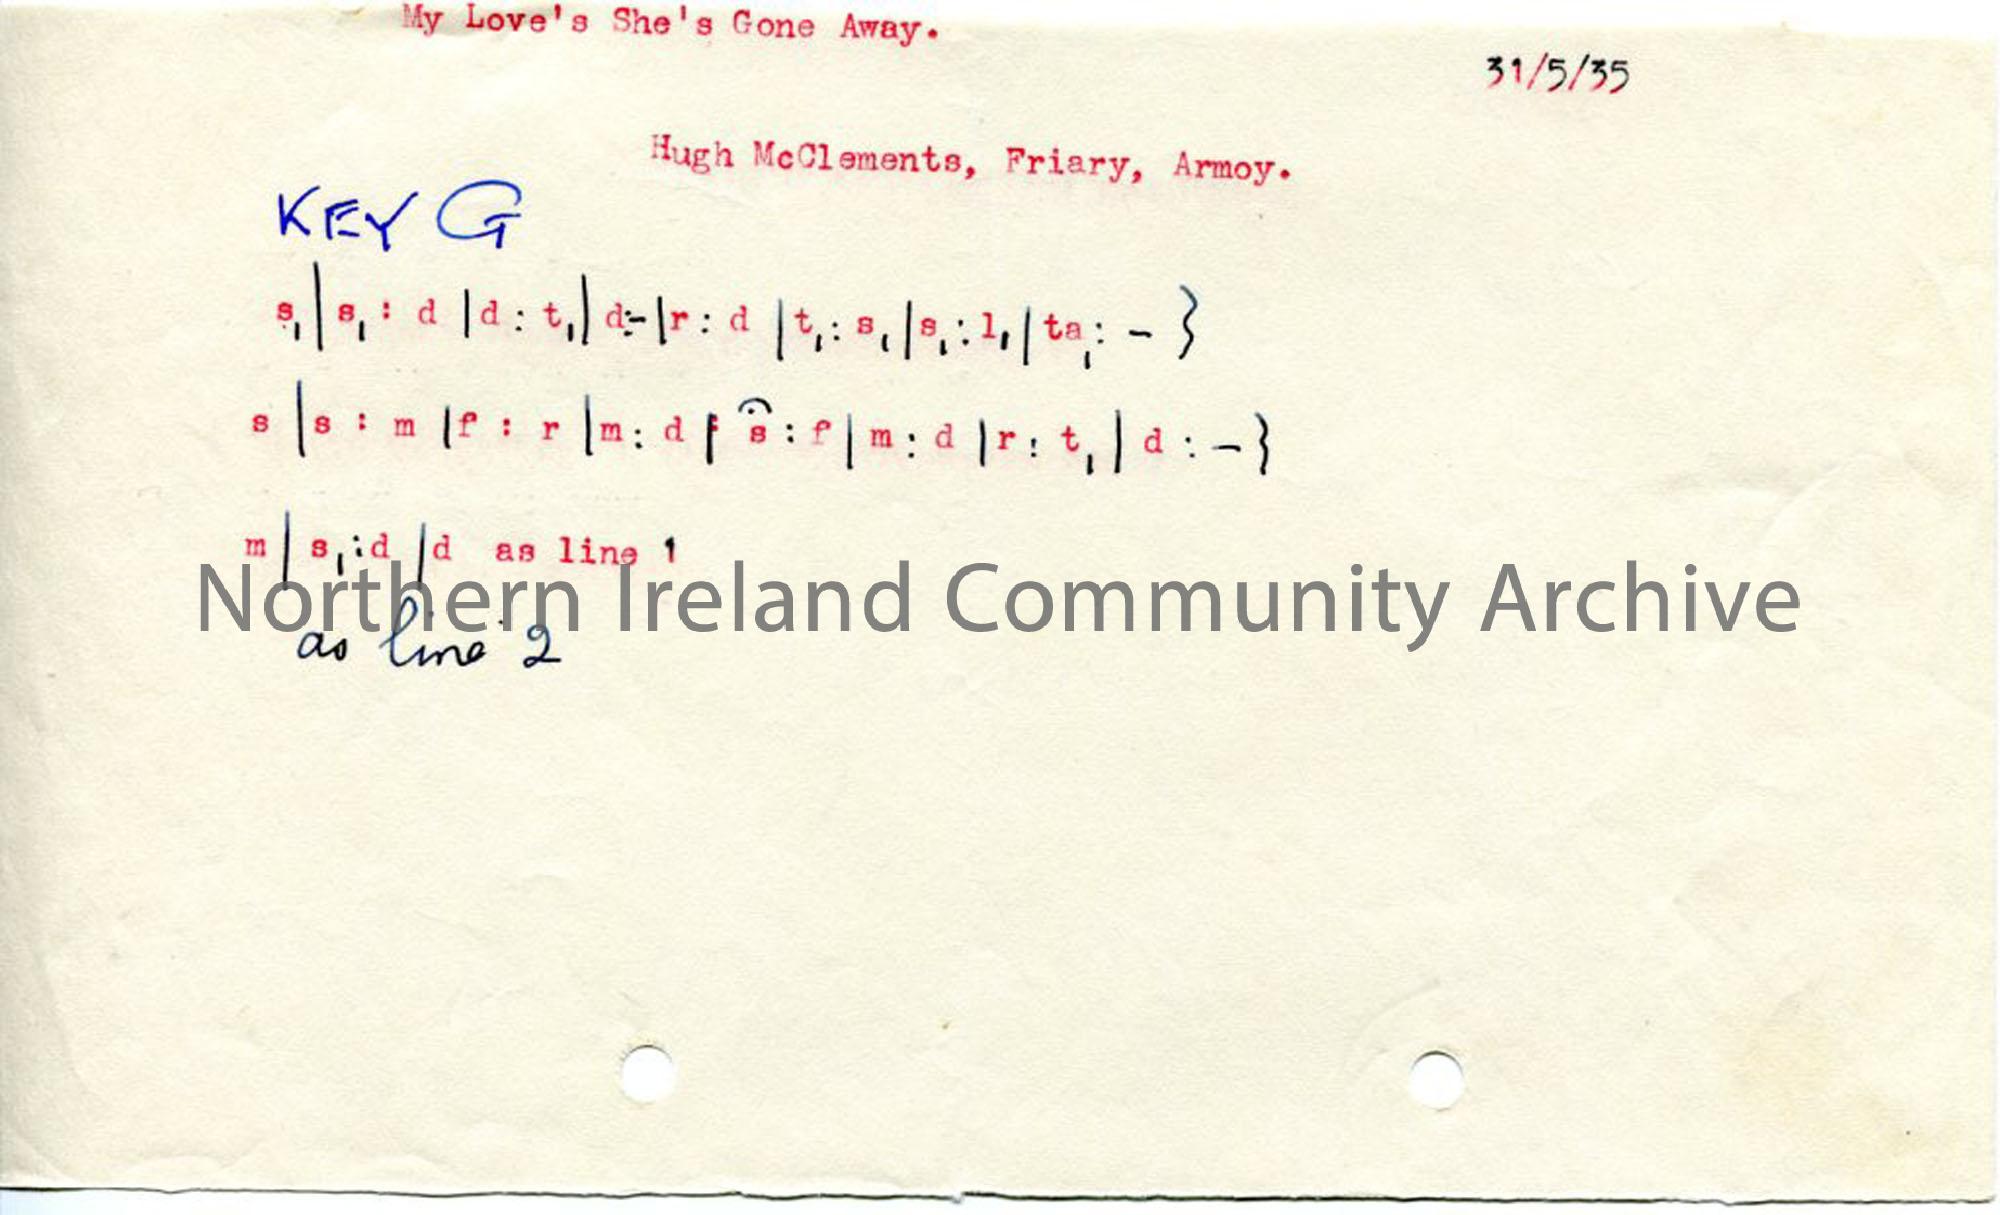 My Love's She's Gone Away.
31/5/35
Hugh McClements, Friary, Armoy.
KEY G
s,| s, : d | d : t, | d:- | r : d | t, : s, | s, : l, | ta, : - }
s | s : m | f : r | m : d | s : f | m : d | r : t, | d : - }
m | s, : d | d as line 1
Northern Ireland Community Archive
as line 2